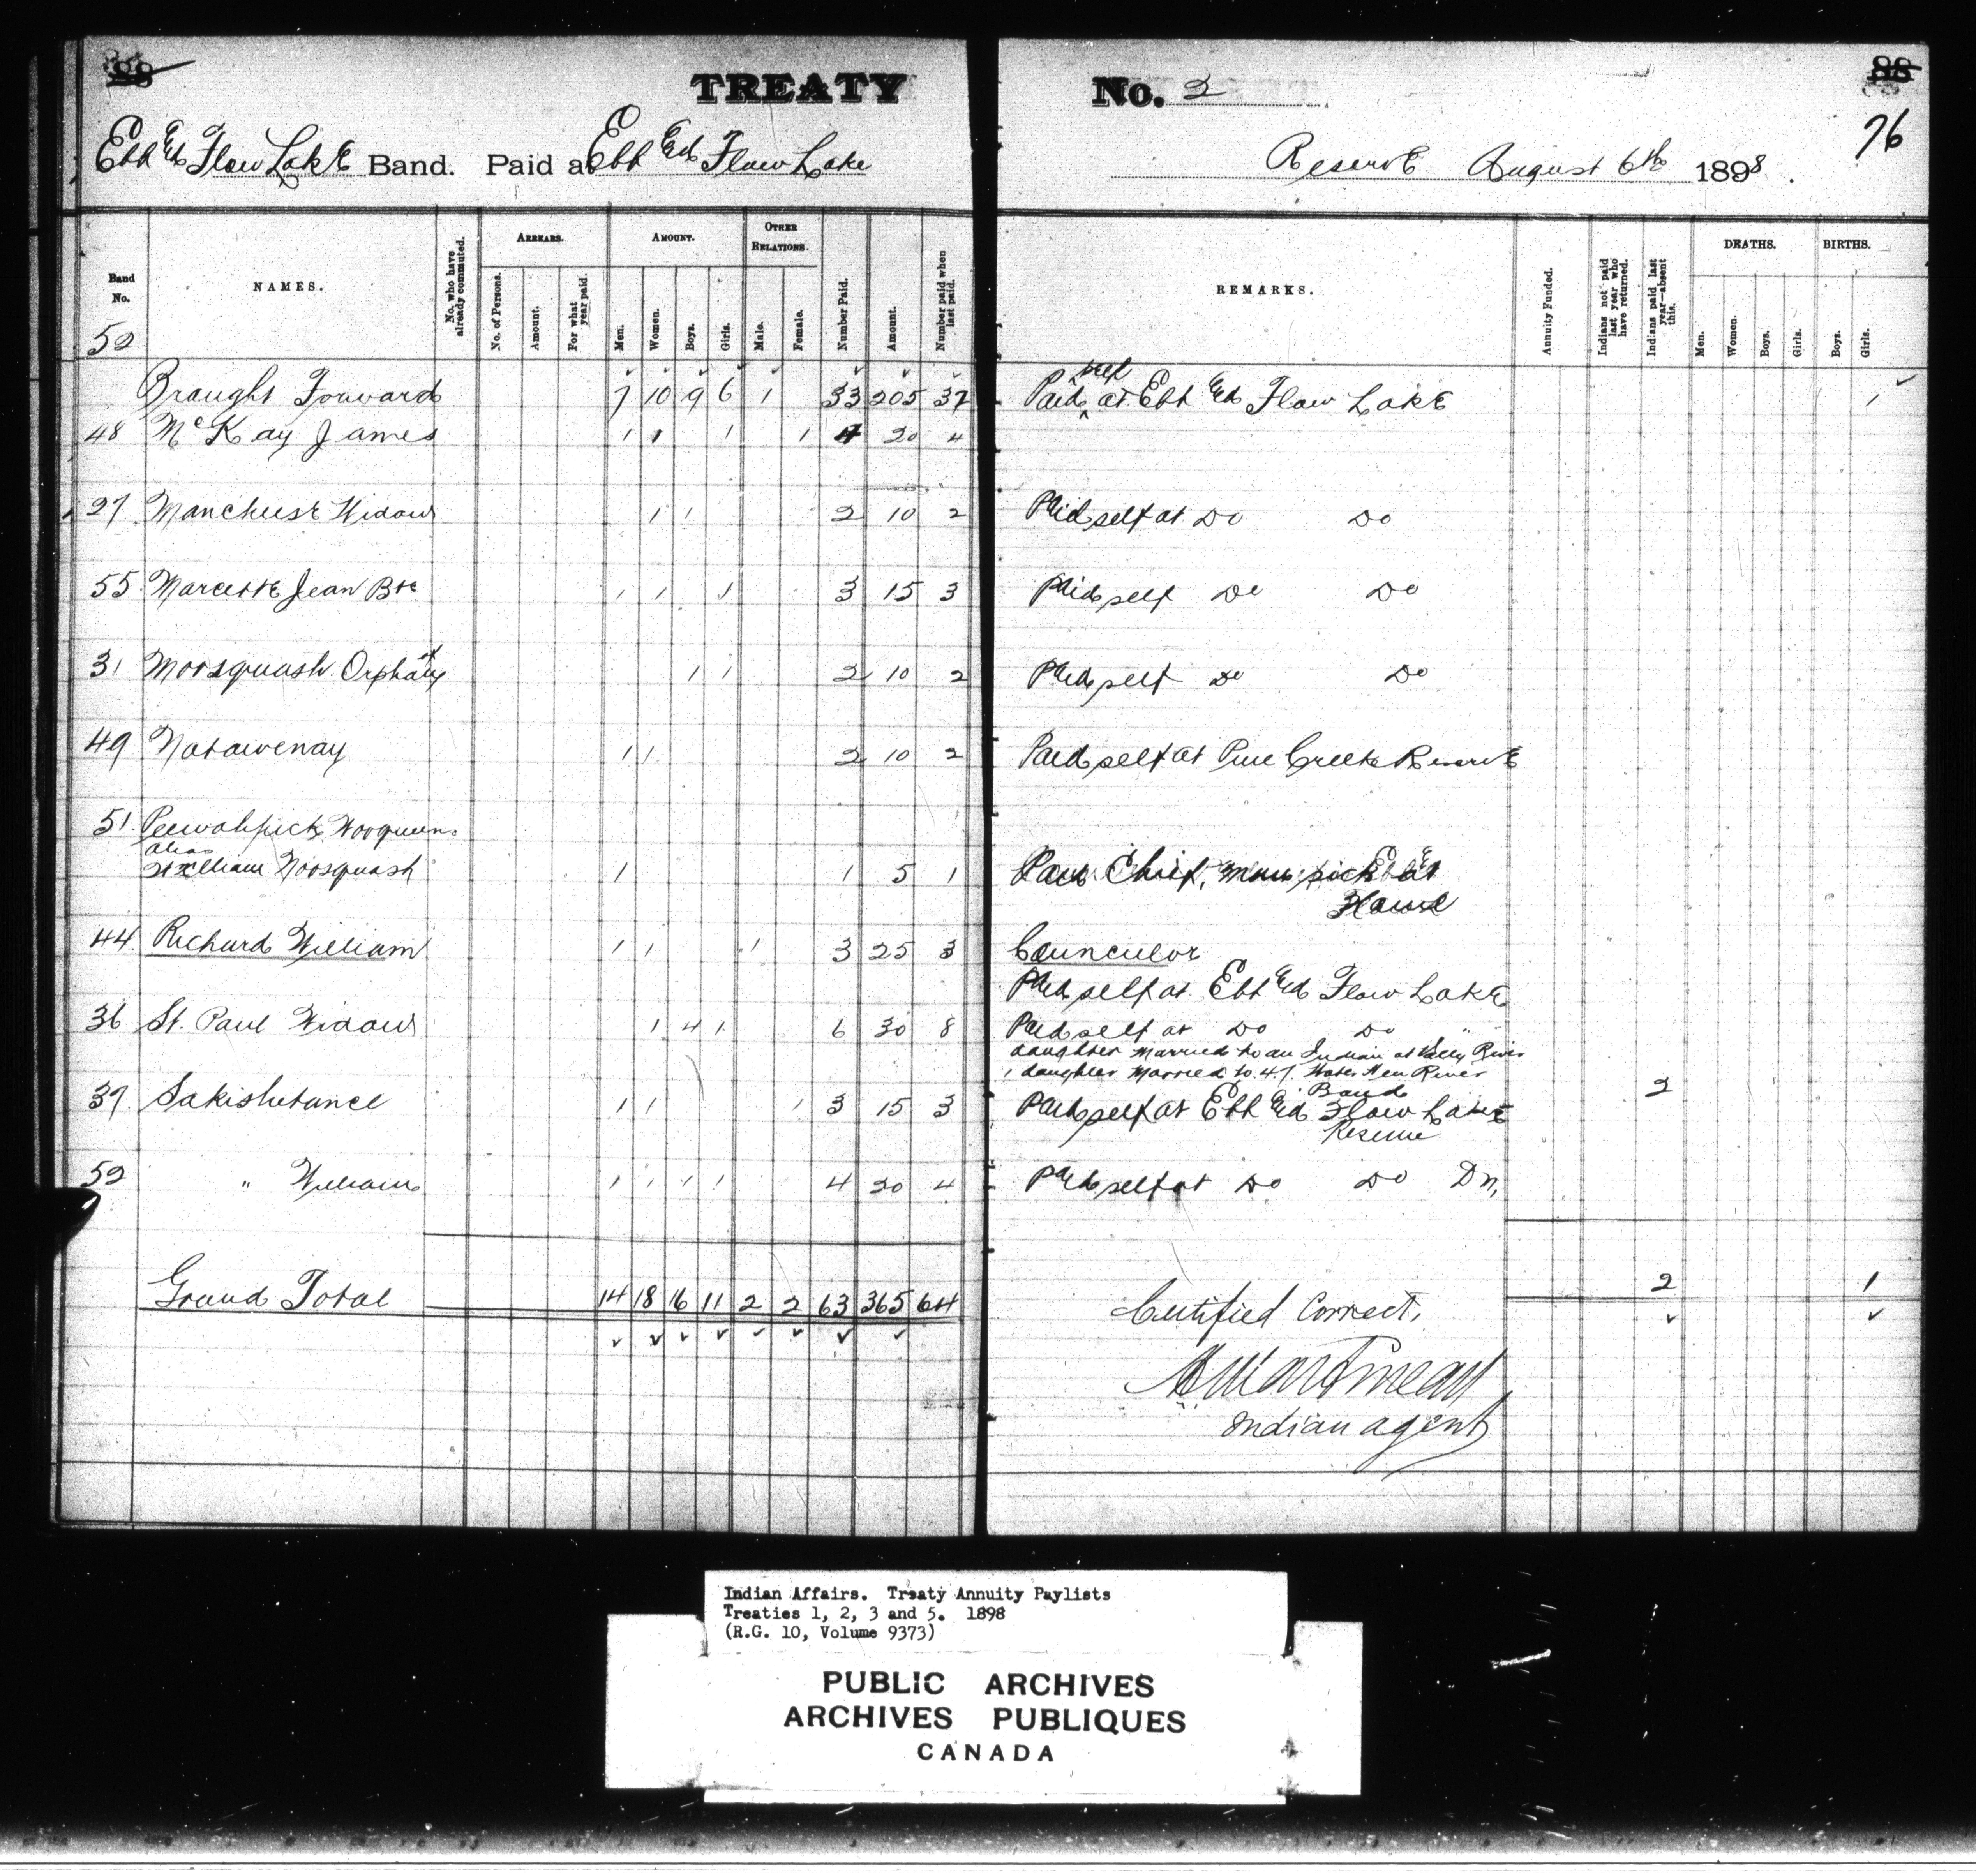 88 TREATY No. 2 88
76
Ebb & Flow Lake Band. Paid at Ebb & Flow Lake Reserve August 6th 1898.
Band No. NAMES. No. who have already commuted. ARREARS. No. of Persons. Amount. For what year paid. AMOUNT. Men. Women. Boys. Girls. OTHER RELATIONS. Male. Female. Number Paid. Amount. Number paid when last paid. REMARKS. Annuity Funded. Indians not paid last year who have returned. Indians paid last year—absent this. DEATHS. Men. Women. Boys. Girls. BIRTHS. Boys. Girls.
52
Brought Forward 7 10 9 6 1 33 205 37 Paid self at Ebb & Flow Lake 1
48 McKay James 1 1 1 1 4 20 4
27 Widow 1 1 2 10 2 Paid self at Do Do
55 Jean Bte 1 1 1 3 15 3 Paid self Do Do
31 Moosquash Orphans of 1 1 2 10 2 Paid self Do Do
49 Natawenay 1 1 2 10 2 Paid self at Pine Creek Reserve
51
alias
William Moosquash 1 1 5 1 Paid Chief, man sick at
House
44 Richard William 1 1 1 3 25 3 Councilor
Paid self at Ebb & Flow Lake
36 St. Paul Widow 1 4 1 6 30 8 Paid self at Do Do "
daughter married to an Indian at Vally River
1 daughter married to 47 Water Hen River
Band 2
37 Sakishetance 1 1 1 3 15 3 Paid self at Ebb & Flow Lake
Reserve
52 " William 1 1 1 1 4 20 4 Paid self at Do Do Do,
Grand Total 14 18 16 11 2 2 63 365 64 2 1
Certified Correct,
Indian agent
Indian Affairs. Treaty Annuity Paylists
Treaties 1, 2, 3 and 5. 1898
(R.G. 10, Volume 9373)
PUBLIC ARCHIVES
ARCHIVES PUBLIQUES
CANADA